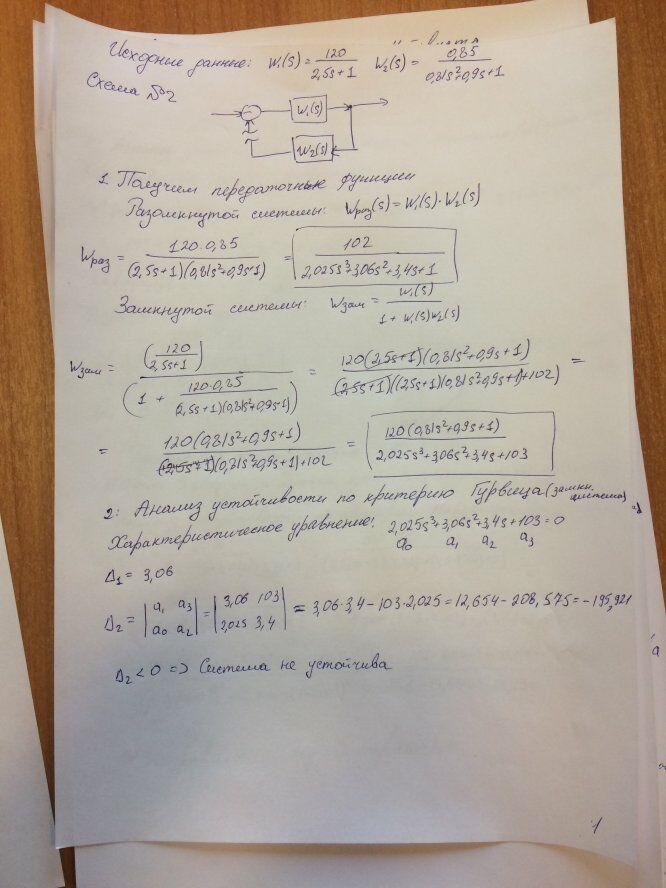 Исходные данные: W₁(s) = 120/(2,5s+1) W₂(s) = 0,85/(0,81s²+0,9s+1)
Схема №2
W₁(s)
W₂(s)
1. Получим передаточные функции
Разомкнутой системы: Wраз(s) = W₁(s)·W₂(s)
Wраз = 120·0,85/((2,5s+1)(0,81s²+0,9s+1)) = 102/(2,025s³+3,06s²+3,4s+1)
Замкнутой системы: Wзам = W₁(s)/(1 + W₁(s)W₂(s))
Wзам = (120/(2,5s+1))/(1 + 120·0,85/((2,5s+1)(0,81s²+0,9s+1))) = 120(2,5s+1)(0,81s²+0,9s+1)/((2,5s+1)((2,5s+1)(0,81s²+0,9s+1)+102)) =
= 120(0,81s²+0,9s+1)/((2,5s+1)(0,81s²+0,9s+1)+102) = 120(0,81s²+0,9s+1)/(2,025s³+3,06s²+3,4s+103)
2: Анализ устойчивости по критерию Гурвица (замкн. система)
Характеристическое уравнение: 2,025s³+3,06s²+3,4s+103=0
a₀ a₁ a₂ a₃
Δ₁ = 3,06
Δ₂ = |a₁ a₃; a₀ a₂| = |3,06 103; 2,025 3,4| = 3,06·3,4 − 103·2,025 = 12,654 − 208,575 = −195,921
Δ₂ < 0 => Система не устойчива
1